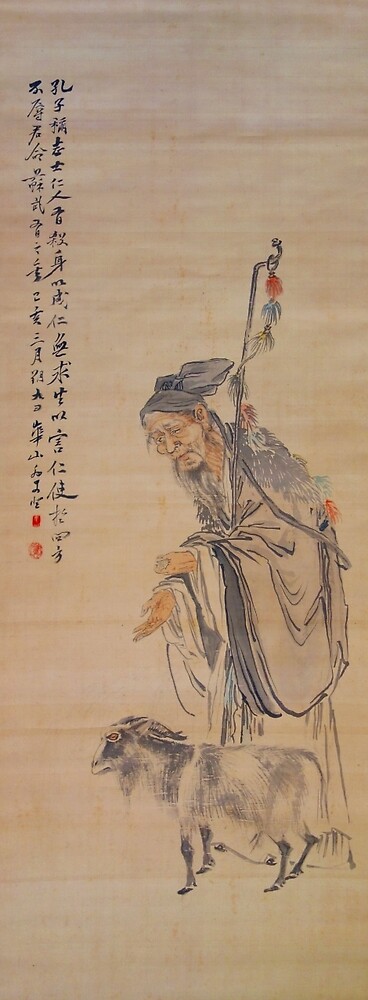 孔子稱志士仁人有殺身以成仁無求生以害仁使於四方
不辱君命蘇武有之矣己亥三月朔九日崋山